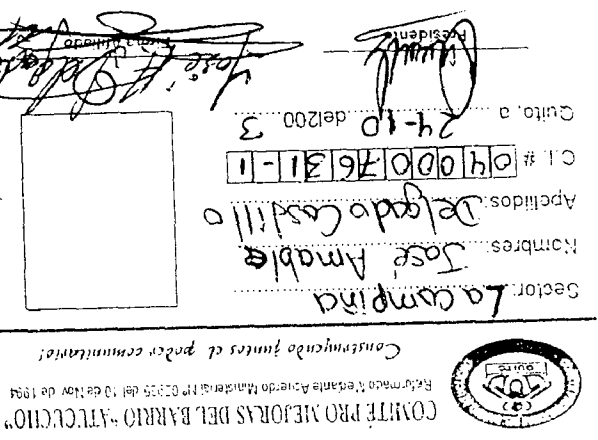 COMITÉ PRO MEJORAS DEL BARRIO "ATUCUCHO"
Reformado Mediante Acuerdo Ministerial Nº 02035 del 10 de Nov. de 1994
Construyendo juntos el poder comunitario!
QUITO
Sector: La campiña
Nombres: José Amable
Apellidos: Delgado Castillo
C.I. # 040007631-1
Quito, a 24-10 del200 3
Presidente
Firma Afiliado
José A Delgado